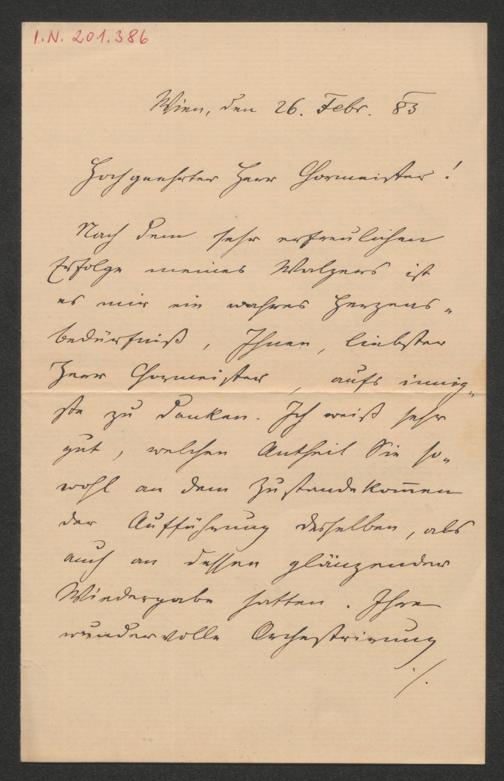 I.N. 201.386
Wien, den 26. Febr. 83
Hochgeehrter Herr Chormeister!
Nach dem sehr erfreulichen
Erfolge meines Walzers ist
es mir ein wahres Herzens„
bedürfniß, Ihnen, liebster
Herr Chormeister, aufs innig„
ste zu danken. Ich weiß sehr
gut, welchen Antheil Sie so„
wohl an dem Zustandekom̄en
der Aufführung desselben, als
auch an dessen glänzender
Wiedergabe hatten. Ihre
wundervolle Orchestrirung
./.